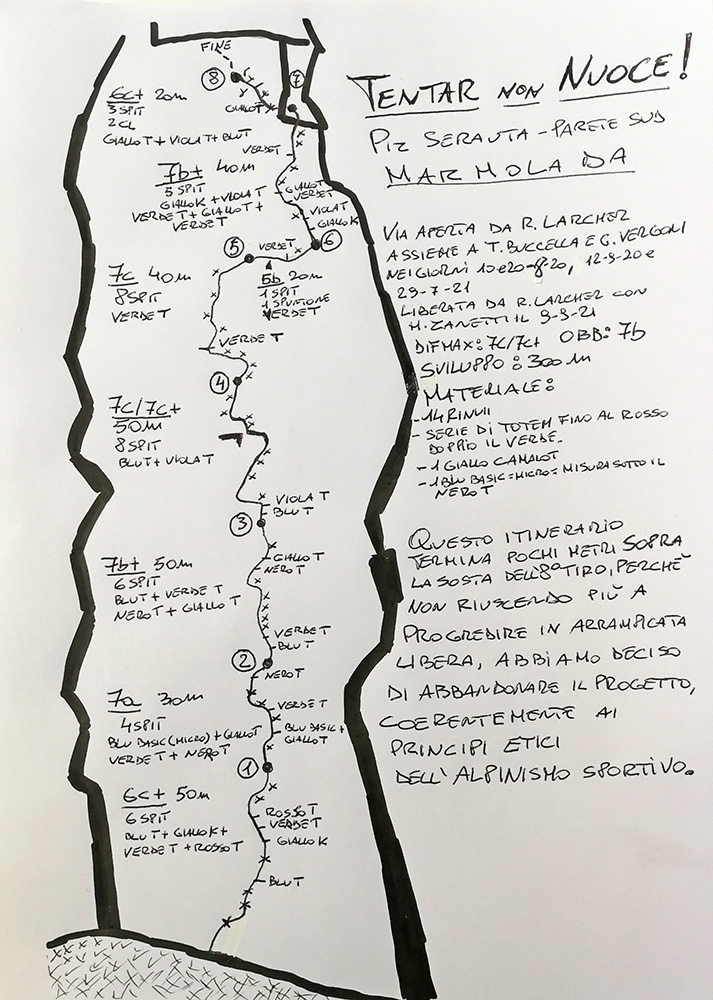 TENTAR NON NUOCE!
PIZ SERAUTA - PARETE SUD
MARMOLADA
VIA APERTA DA R. LARCHER
ASSIEME A T. BUCCELLA E G. VERGONI
NEI GIORNI 10 E 20-8-20, 12-9-20 E
29-7-21
LIBERATA DA R. LARCHER CON
M. ZANETTI IL 9-9-21
DIF MAX: 7C/7C+ OBB: 7b
SVILUPPO: 300 m
MATERIALE:
- 14 RINVII
- SERIE DI TOTEM FINO AL ROSSO
DOPPIO IL VERDE.
- 1 GIALLO CAMALOT
- 1 BLU BASIC = MICRO = MISURA SOTTO IL
NERO T
QUESTO ITINERARIO
TERMINA POCHI METRI SOPRA
LA SOSTA DELL'8° TIRO, PERCHÈ
NON RIUSCENDO PIÙ A
PROGREDIRE IN ARRAMPICATA
LIBERA, ABBIAMO DECISO
DI ABBANDONARE IL PROGETTO,
COERENTEMENTE AI
PRINCIPI ETICI
DELL'ALPINISMO SPORTIVO.
FINE
8
7
GIALLO T
6C+ 20m
3 SPIT
2 CL
GIALLO T + VIOLA T + BLU T
VERDE T
7b+ 40m
5 SPIT
GIALLO K + VIOLA T
VERDE T + GIALLO T +
VERDE T
GIALLO T
VERDE T
VIOLA T
GIALLO K
6
5
VERDE T
5b 20m
1 SPIT
1 SPUNTONE
VERDE T
7C 40m
8 SPIT
VERDE T
VERDE T
4
7C/7C+
50m
8 SPIT
BLU T + VIOLA T
VIOLA T
BLU T
3
GIALLO T
NERO T
7b+ 50m
6 SPIT
BLU T + VERDE T
NERO T + GIALLO T
VERDE T
BLU T
2
NERO T
7a 30m
4 SPIT
BLU BASIC (MICRO) + GIALLO T
VERDE T + NERO T
VERDE T
BLU BASIC +
GIALLO T
1
6C+ 50m
6 SPIT
BLU T + GIALLO K +
VERDE T + ROSSO T
ROSSO T
VERDE T
GIALLO K
BLU T